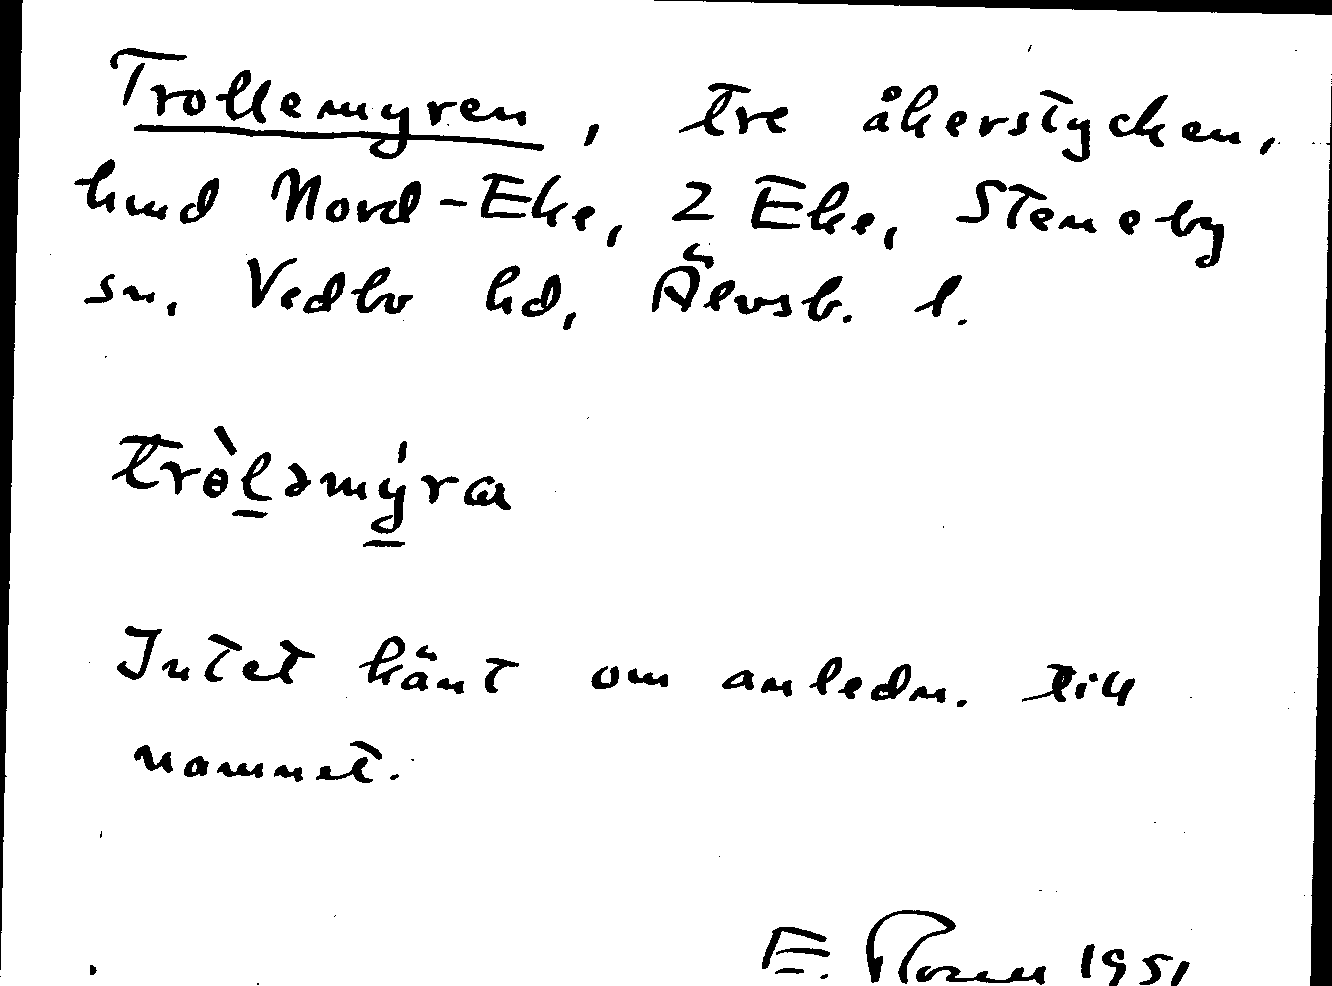 Trollemyren, tre åkerstycken,
hmd Nord-Eke, 2 Eke, Steneby
sn, Vedbo hd, Älvsb. l.
trɵ̀lǝmýra
Intet känt om anledn. till
namnet.
E. 1951